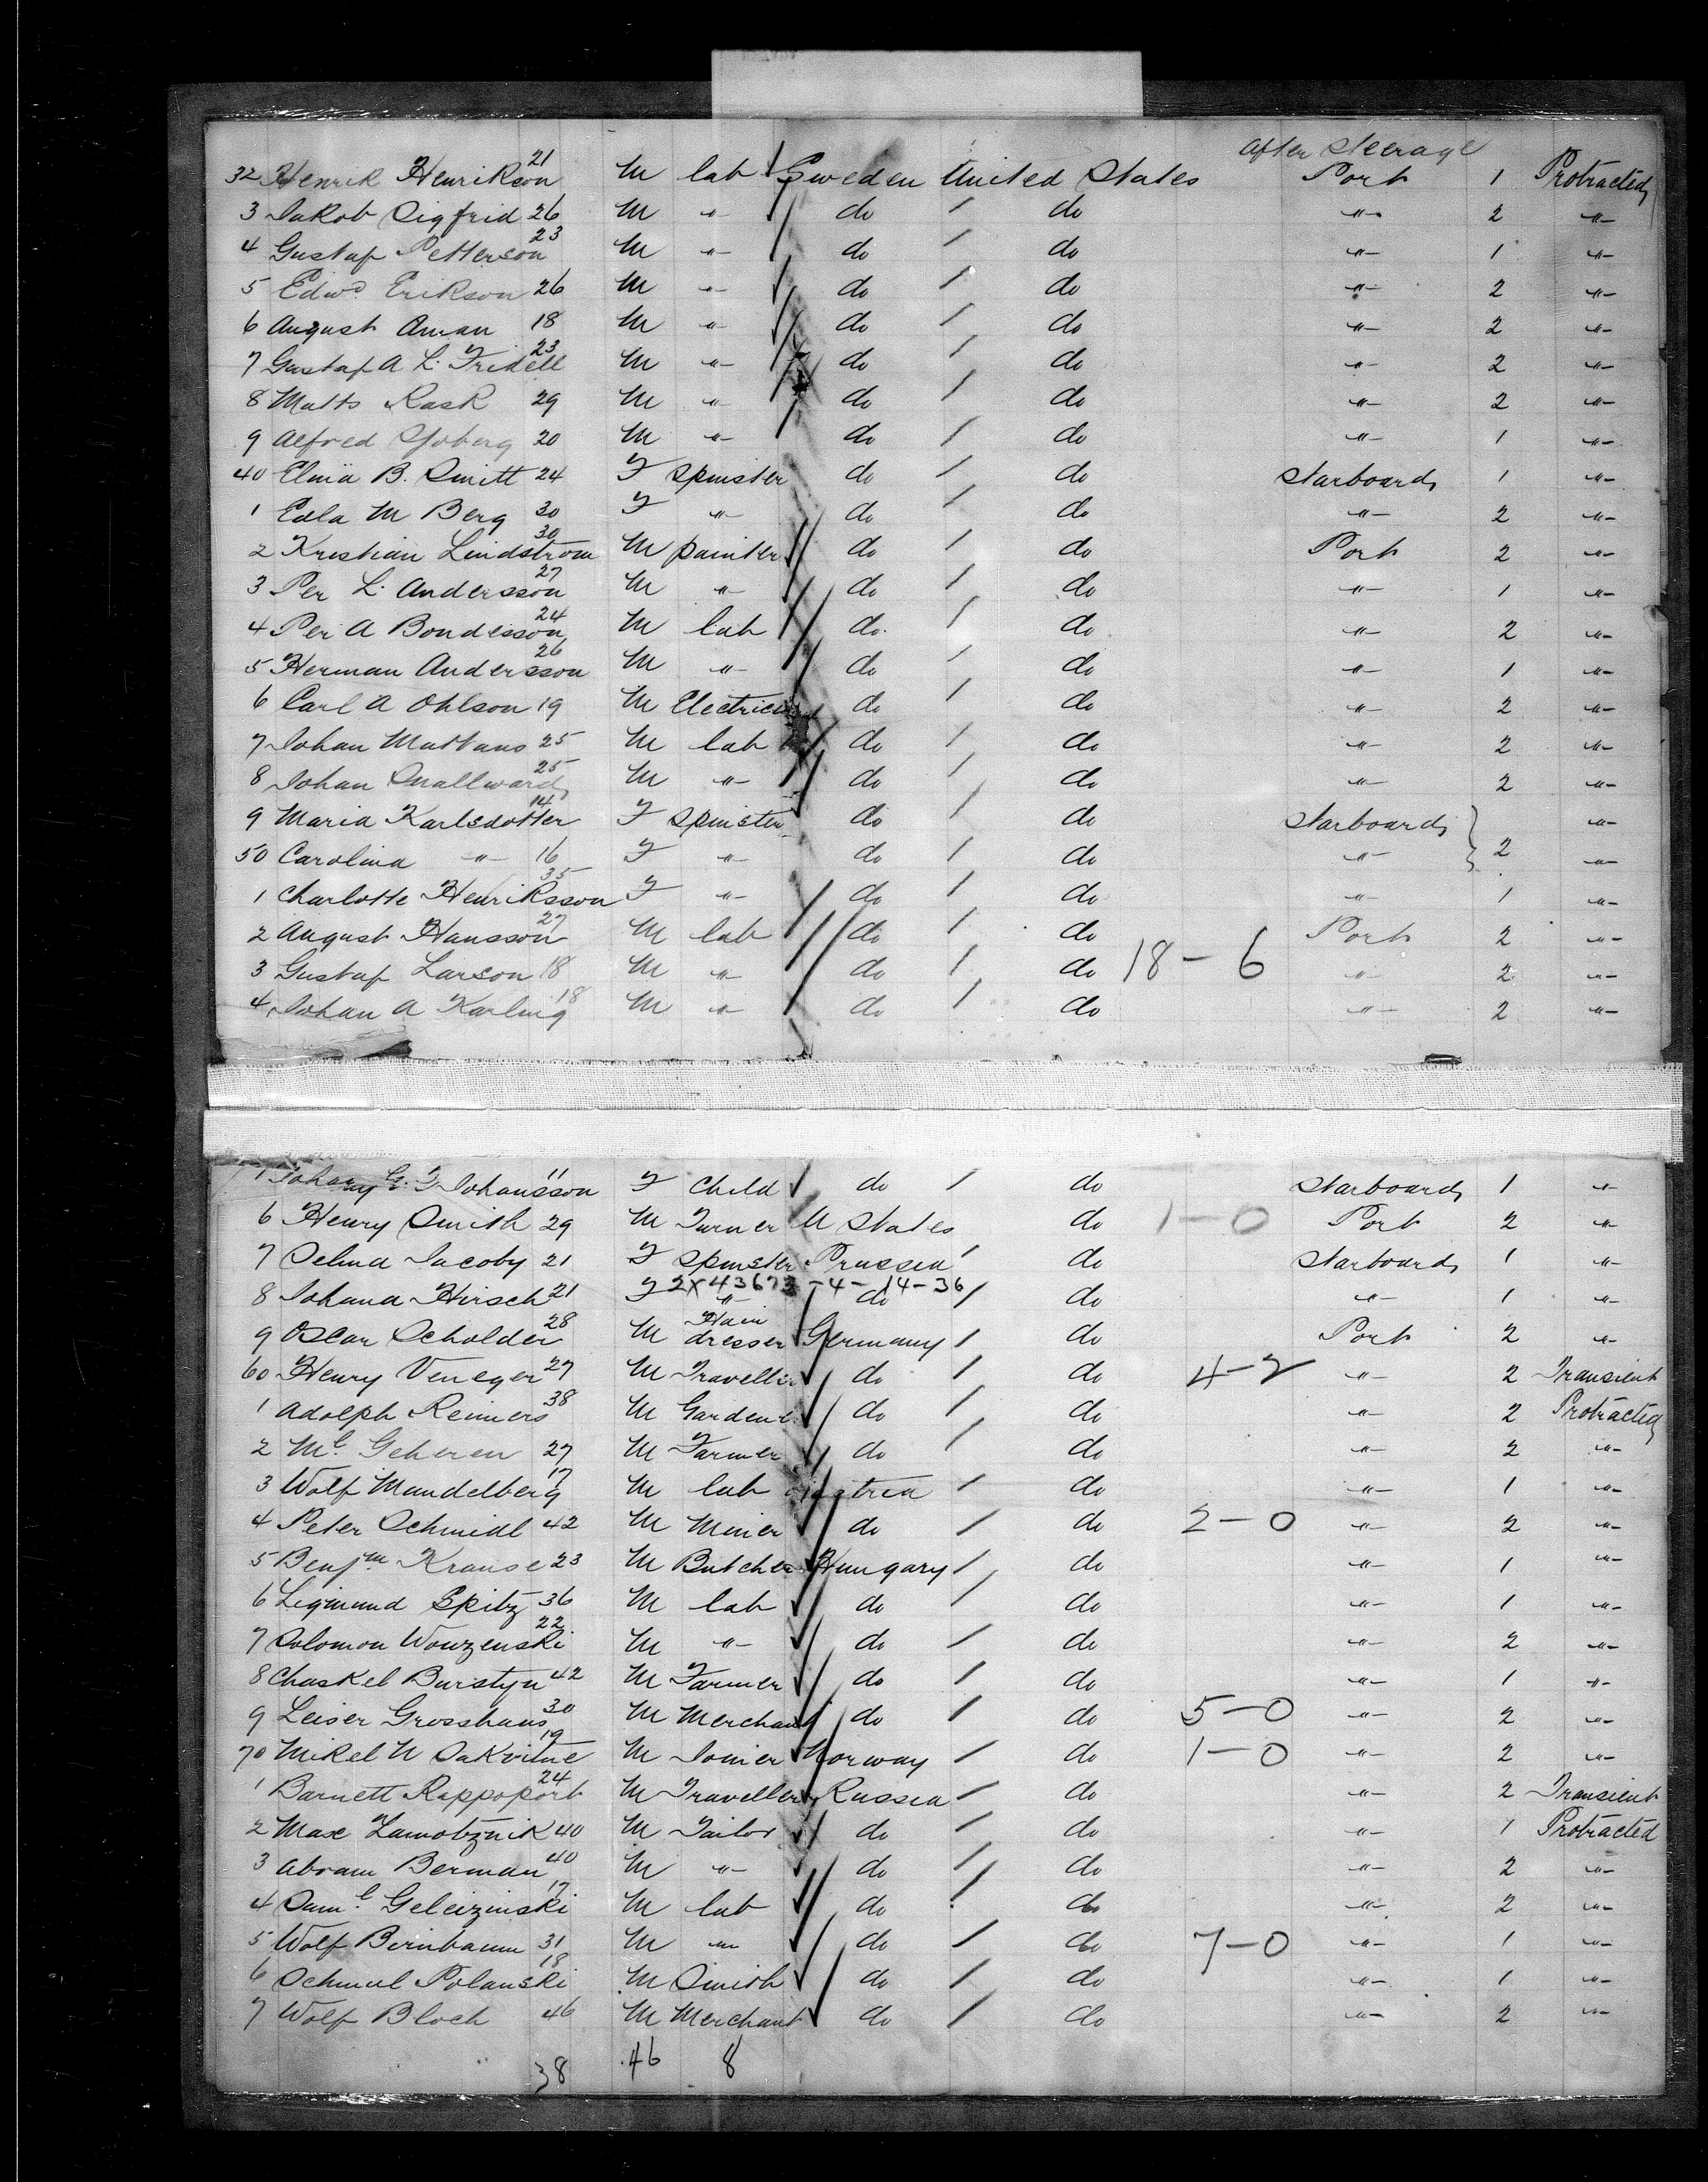 After Steerage
32 Henrik Henrikson 21 M lab Sweden United States Port 1 Protracted
3 Jakob Sigfrid 26 M " do / do " 2 "
4 Gustaf Petterson 23 M " do / do " 1 "
5 Edwd Erikson 26 M " do / do " 2 "
6 August Aman 18 M " do / do " 2 "
7 Gustaf A L. Fridell 23 M " do / do " 2 "
8 Matts Rask 29 M " do / do " 2 "
9 Alfred Sjoberg 20 M " do / do " 1 "
40 B. Smitt 24 F Spinster do / do Starboard 1 "
1 Edla M Berg 30 F " do / do " 2 "
2 Kristian Lindstrom 30 M painter do / do Port 2 "
3 Per L. Andersson 27 M " do / do " 1 "
4 Per A Bondesson 24 M lab do. / do " 2 "
5 Herman Andersson 26 M " do / do " 1 "
6 Carl A Ohlson 19 M Electrician do / do " 2 "
7 Johan Mattans 25 M lab do / do " 2 "
8 Johan 25 M " do / do " 2 "
9 Maria Karlsdotter 14 F Spinster do / do Starboard "
50 Carolina " 16 F " do / do " 2 "
1 Charlotte Henriksson 35 F " do / do " 1 "
2 August Hansson 27 M lab do / do Port 2 "
3 Gustaf Larson 18 M " do / do 18-6 " 2 "
4 Johan A Karling 18 M " do / do " 2 "
Johansson 11 F Child do / do Starboard 1 "
6 Henry Smith 29 M Turner U States do 1-0 Port 2 "
7 Selma Jacoby 21 F Spinster Prussia / do Starboard 1 "
2X43673-4-14-36
8 Johana Hirsch 21 F " do / do " 1 "
9 Oscar Scholder 28 M Hair dresser Germany / do Port 2 "
60 Henry Veneger 27 M Traveller do / do 4-2 " 2 Transient
1 Adolph Reimers 38 M Gardener do / do " 2 Protracted
2 Geheren 27 M Farmer do / do " 2 "
3 Wolf Mandelberg 17 M lab Austria / do " 1 "
4 Peter Schmidl 42 M Miner do / do 2-0 " 2 "
5 Benjm Krause 23 M Butcher Hungary / do " 1 "
6 Sigmund Spitz 36 M lab do / do " 1 "
7 Solomon Wouzenski 22 M " do / do " 2 "
8 Chaskel Burstyn 42 M Farmer do / do " 1 "
9 Leiser Grosshaus 30 M Merchant do / do 5-0 " 2 "
70 Mikel N Sakvitne 19 M Joiner Norway / do 1-0 " 2 "
1 Barnett Rappoport 24 M Traveller Russia / do " 2 Transient
2 Max 40 M Tailor do / do " 1 Protracted
3 Abram Berman 40 M " do / do " 2 "
4 Saml Geleizinski 17 M lab do / do " 2 "
5 Wolf Birnbaum 31 M " do / do 7-0 " 1 "
6 Schmul Polanski 18 M Smith do / do " 1 "
7 Wolf Bloch 46 M Merchant do / do " 2 "
38 46 8